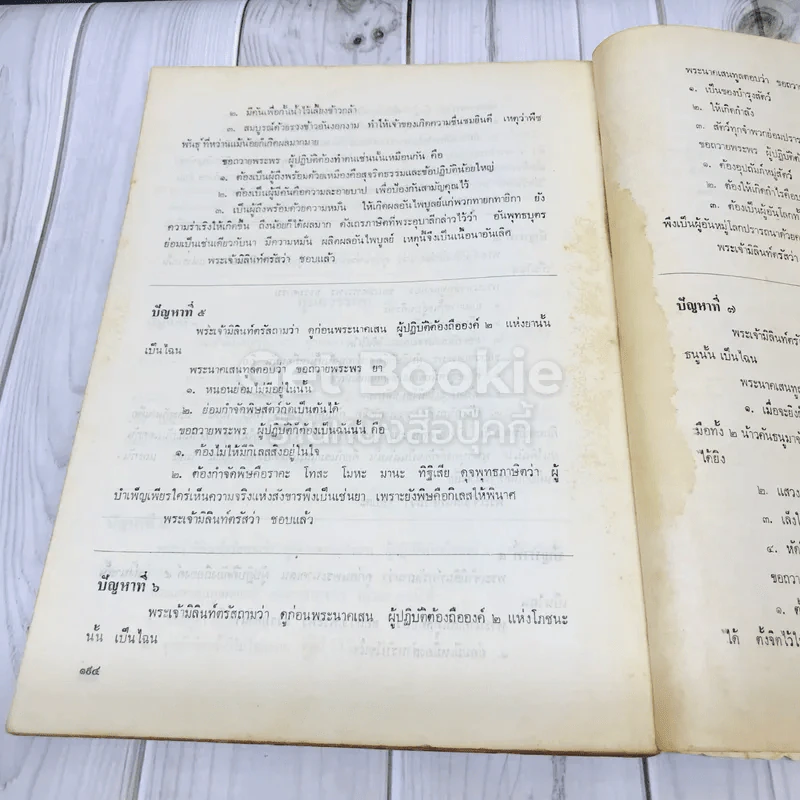 ๒. มีคันเพื่อกั้นน้ำไว้เลี้ยงข้าวกล้า
๓. สมบูรณ์ด้วยรวงข้าวอันงอกงาม ทำให้เจ้าของเกิดความชื่นชมยินดี เหตุว่าพืช
พันธุ์ที่หว่านแม้น้อยก็เกิดผลมากมาย
ขอถวายพระพร ผู้ปฏิบัติต้องทำตนเช่นนั้นเหมือนกัน คือ
๑. ต้องเป็นผู้ถึงพร้อมด้วยเหมืองคือสุจริตธรรมและข้อปฏิบัติน้อยใหญ่
๒. ต้องเป็นผู้มีคันคือความละอายบาป เพื่อป้องกันสามัญคุณไว้
๓. เป็นผู้ถึงพร้อมด้วยความหมั่น ให้เกิดผลอันไพบูลย์แก่พวกทายกทายิกา ยัง
ความร่าเริงให้เกิดขึ้น ถึงน้อยก็ได้ผลมาก ดังเถรภาษิตที่พระอุบาลีกล่าวไว้ว่า อันพุทธบุตร
ย่อมเป็นเช่นเดียวกับนา มีความหมั่น ผลิตผลอันไพบูลย์ เหตุนี้จึงเป็นเนื้อนาอันเลิศ
พระเจ้ามิลินท์ตรัสว่า ชอบแล้ว
ปัญหาที่ ๕
พระเจ้ามิลินท์ตรัสถามว่า ดูก่อนพระนาคเสน ผู้ปฏิบัติต้องถือองค์ ๒ แห่งยานั้น
เป็นไฉน
พระนาคเสนทูลตอบว่า ขอถวายพระพร ยา
๑. หนอนย่อมไม่มีอยู่ในนั้น
๒. ย่อมกำจัดพิษสัตว์กัดเป็นต้นได้
ขอถวายพระพร ผู้ปฏิบัติก็ต้องเป็นฉันนั้น คือ
๑. ต้องไม่ให้มีกิเลสสิงอยู่ในใจ
๒. ต้องกำจัดพิษคือราคะ โทสะ โมหะ มานะ ทิฐิเสีย ดุจพุทธภาษิตว่า ผู้
บำเพ็ญเพียรใคร่เห็นความจริงแห่งสังขารพึงเป็นเช่นยา เพราะยังพิษคือกิเลสให้พินาศ
พระเจ้ามิลินท์ตรัสว่า ชอบแล้ว
ปัญหาที่ ๖
พระเจ้ามิลินท์ตรัสถามว่า ดูก่อนพระนาคเสน ผู้ปฏิบัติต้องถือองค์ ๒ แห่งโภชนะ
นั้น เป็นไฉน
๑๕๔
พระนาคเสนทูลตอบว่า ขอถวาย
๑. เป็นของบำรุงสัตว์
๒. ให้เกิดกำลัง
๓. สัตว์ทุกจำพวกย่อมปรา
ขอถวายพระพร ผู้ปฏิบัติ
๑. ต้องอุปถัมภ์หมู่สัตว์
๒. ต้องให้เกิดกำไรคือ
๓. ต้องเป็นผู้อันโลก
พึงเป็นผู้อันหมู่โลกปรารถนาด้วย
พระเจ้ามิลินท์ตรัสว่า
ปัญหาที่ ๗
พระเจ้ามิลินท์ตรั
ธนูนั้น เป็นไฉน
พระนาคเสนทูล
๑. เมื่อจะยิง
มือทั้ง ๒ น้าวคันธนูมา
ได้ยิง
๒. แสวง
๓. เล็งไ
๔. หัด
ขอถวาย
๑. ต้
ได้ ตั้งจิตไว้ใ
Get Bookie
ร้านหนังสือบุ๊คกี้